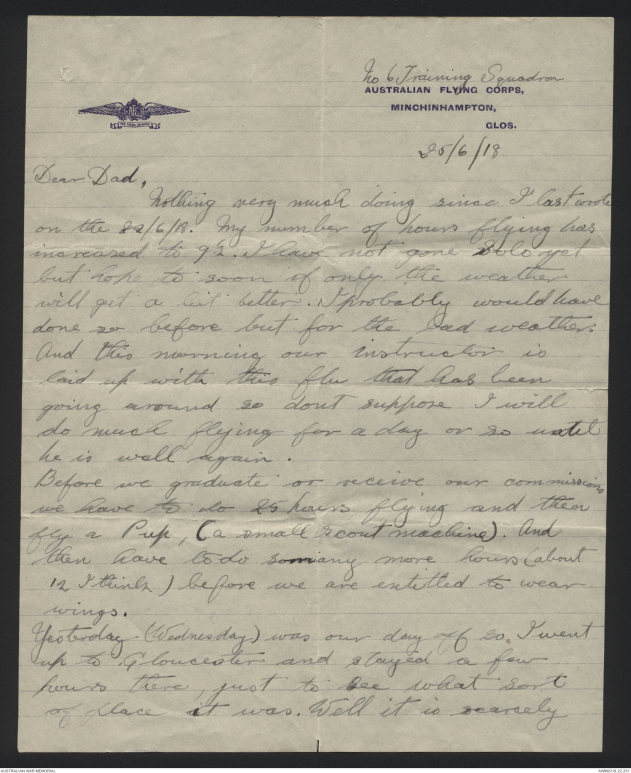 No 6 Training Squadron
AUSTRALIAN FLYING CORPS,
MINCHINHAMPTON,
GLOS.
25/6/18
Dear Dad,
Nothing very much doing since I last wrote
on the 22/6/18. My number of hours flying has
increased to 9½. I have not gone Solo yet
but hope to soon if only the weather
will get a bit better. I probably would have
done so before but for the bad weather.
And this morning our instructor is
laid up with this flu that has been
going around so dont suppose I will
do much flying for a day or so until
he is well again.
Before we graduate or receive our commissions
we have to do 25 hours flying and then
fly a Pup, (a small scout machine). And
then have to do so many more hours (about
12 I think) before we are entitled to wear
wings.
Yesterday (Wednesday) was our day off so I went
up to Gloucester and stayed a few
hours there, just to see what sort
of place it was. Well it is scarcely
AUSTRALIAN WAR MEMORIAL